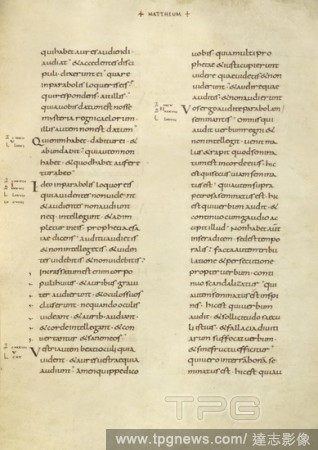 + MATTHEUM +
qui habet aures audiendi
audiat · & accedentes disci
puli dixerunt ei · quare
in parabolis loqueris eis ·
qui respondens ait illis ·
quia uobis datum est nosse
mysteria regni caelorum ·
illis autem non est datum ·
Qui enim habet · dabitur ei · &
abundabit · qui autem non
habet · & quod habet aufere
tur ab eo ·
Ideo in parabolis loquor eis ·
quia uidentes non uident
& audientes non audiunt
neque intellegunt · & adim
pletur in eis · prophetia esa
iae dicens · auditu audietis
& non intellegetis · & uiden
tes uidebitis & non uidebitis ·
Incrassatum est enim cor po
puli huius · & auribus graui
ter audierunt · & oculos suos
cluserunt · ne quando oculis
uideant · & auribus audiant
& corde intellegant · & con
uertantur · & sanem eos ·
Vestri autem beati oculi quia
uident · & aures uestrae quia
audiunt · amen quippe dico
uobis · quia multi pro
phetae & iusti cupierunt
uidere quae uidetis & non
uiderunt · & audire quae
auditis · & non audierunt
Vos ergo audite parabolam
seminantis · omnis qui
audit uerbum regni &
non intellegit · uenit ma
lus & rapit quod semina
tum est in corde eius · hic
est qui secus uiam semina
tus est · qui autem supra
petrosa seminatus est · hic
est qui uerbum audit · &
continuo cum gaudio ac
cipit illud · non habet autem
in se radicem · sed est tempo
ralis · facta autem tribu
latione & persecutione
propter uerbum · conti
nuo scandalizatur · qui
autem seminatus est in spi
nis · hic est qui uerbum
audit · & sollicitudo saecu
li istius · & fallacia diuiti
arum suffocat uerbum ·
& sine fructu efficitur ·
qui uero in terra bona se
minatus est · hic est qui au
TPG
www.tpgnews.com / 達志影像